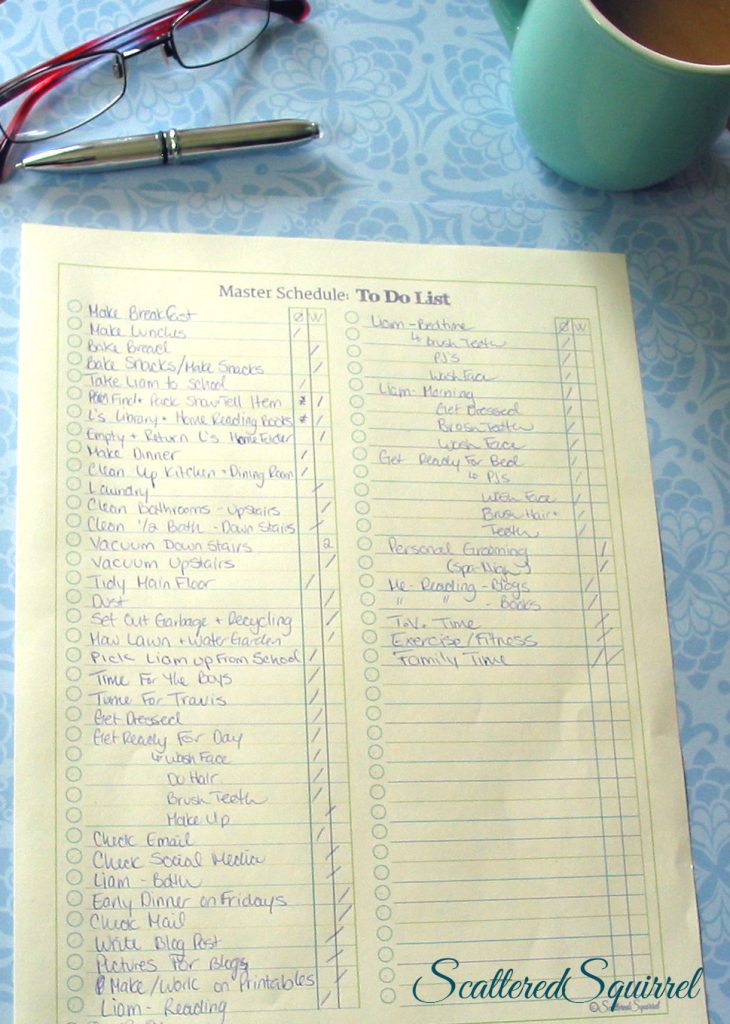 Master Schedule: To Do List
D W
Make Breakfast
Make Lunches
Bake Bread
Bake Snacks/Make Snacks
Take Liam to School
Find + Pack Show Tell Item
L's Library + Home Reading Books
Empty + Return L's Home Folder
Make Dinner
Clean Up Kitchen + Dining Room
Laundry
Clean Bathrooms - Upstairs
Clean 1/2 Bath - Down Stairs
Vacuum Down Stairs 2
Vacuum Upstairs
Tidy Main Floor
Dust
Set Out Garbage + Recycling
Mow Lawn + Water Garden
Pick Liam up From School
Time For the Boys
Time For Travis
Get Dressed
Get Ready For Day
↳ Wash Face
Do Hair
Brush Teeth
Make Up
Check Email
Check Social Media
Liam - Bath
Early Dinner on Fridays
Check Mail
Write Blog Post
Pictures For Blogs
Make/Work on Printables
Liam - Reading
D W
Liam - Bedtime
↳ Brush Teeth
PJ's
Wash Face
Liam - Morning
Get Dressed
Brush Teeth
Wash Face
Get Ready For Bed
↳ PJ's
Wash Face
Brush Hair +
Teeth
Personal Grooming
(Spa-Night)
Me - Reading - Blogs
" " - Books
T.V. Time
Exercise/Fitness
Family Time
ScatteredSquirrel
©ScatteredSquirrel